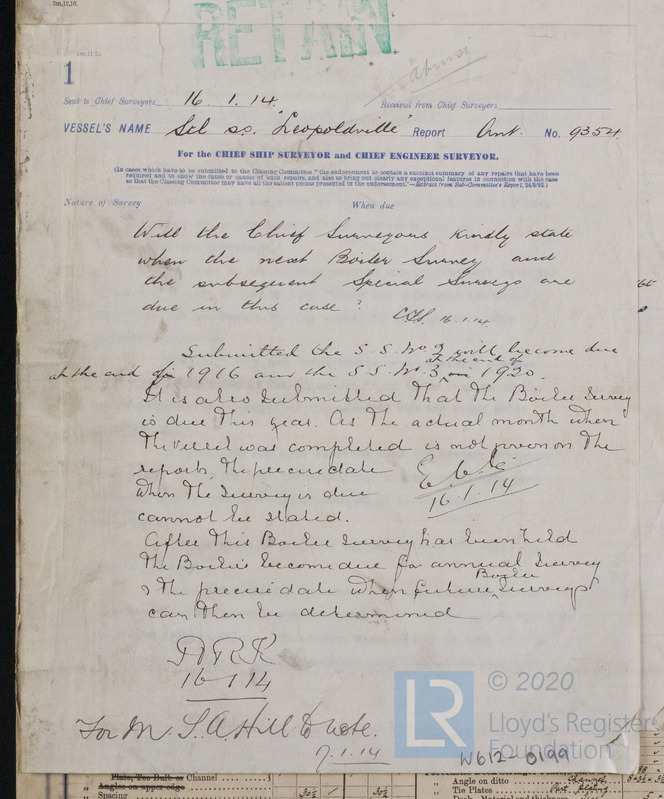 2m,12,10.
RETAIN
2m,11,12.
1
Sent to Chief Surveyors 16. 1. 14.
Received from Chief Surveyors
VESSEL'S NAME Stl ss. "Leopoldville" Report Ant. No. 9354
For the CHIEF SHIP SURVEYOR and CHIEF ENGINEER SURVEYOR.
(In cases which have to be submitted to the Classing Committee "the endorsement to contain a succinct summary of any repairs that have been
required and to show the cause or causes of such repairs, and also to bring out clearly any exceptional features in connection with the case
so that the Classing Committee may have all the salient points presented in the endorsement."—Extract from Sub-Committee's Report, 24/6/93.)
Nature of Survey When due
Will the Chief Surveyors kindly state
when the next Boiler Survey and
the subsequent Special Surveys are
due in this case?
16.1.14.
Submitted the S.S. No. 2 will become due
at the end of 1916 and the S.S. No. 3 at the end of 1920.
It is also submitted that the Boiler Survey
is due this year. As the actual month when
the vessel was completed is not given on the
reports, the precise date
when the survey is due
cannot be stated.
16.1.14
After this Boiler Survey has been held
the Boilers become due for annual survey
& the precise date when future Boiler surveys
can then be determined
16.1.14
For Mr. S. A. Hill to note.
17.1.14
LR
© 2020
Lloyd's Register
Foundation
W612-0199
Plate, Tee Bulb or Channel
Angles on upper edge
Spacing 30½ 30½
Angle on ditto Channel
Tie Plates